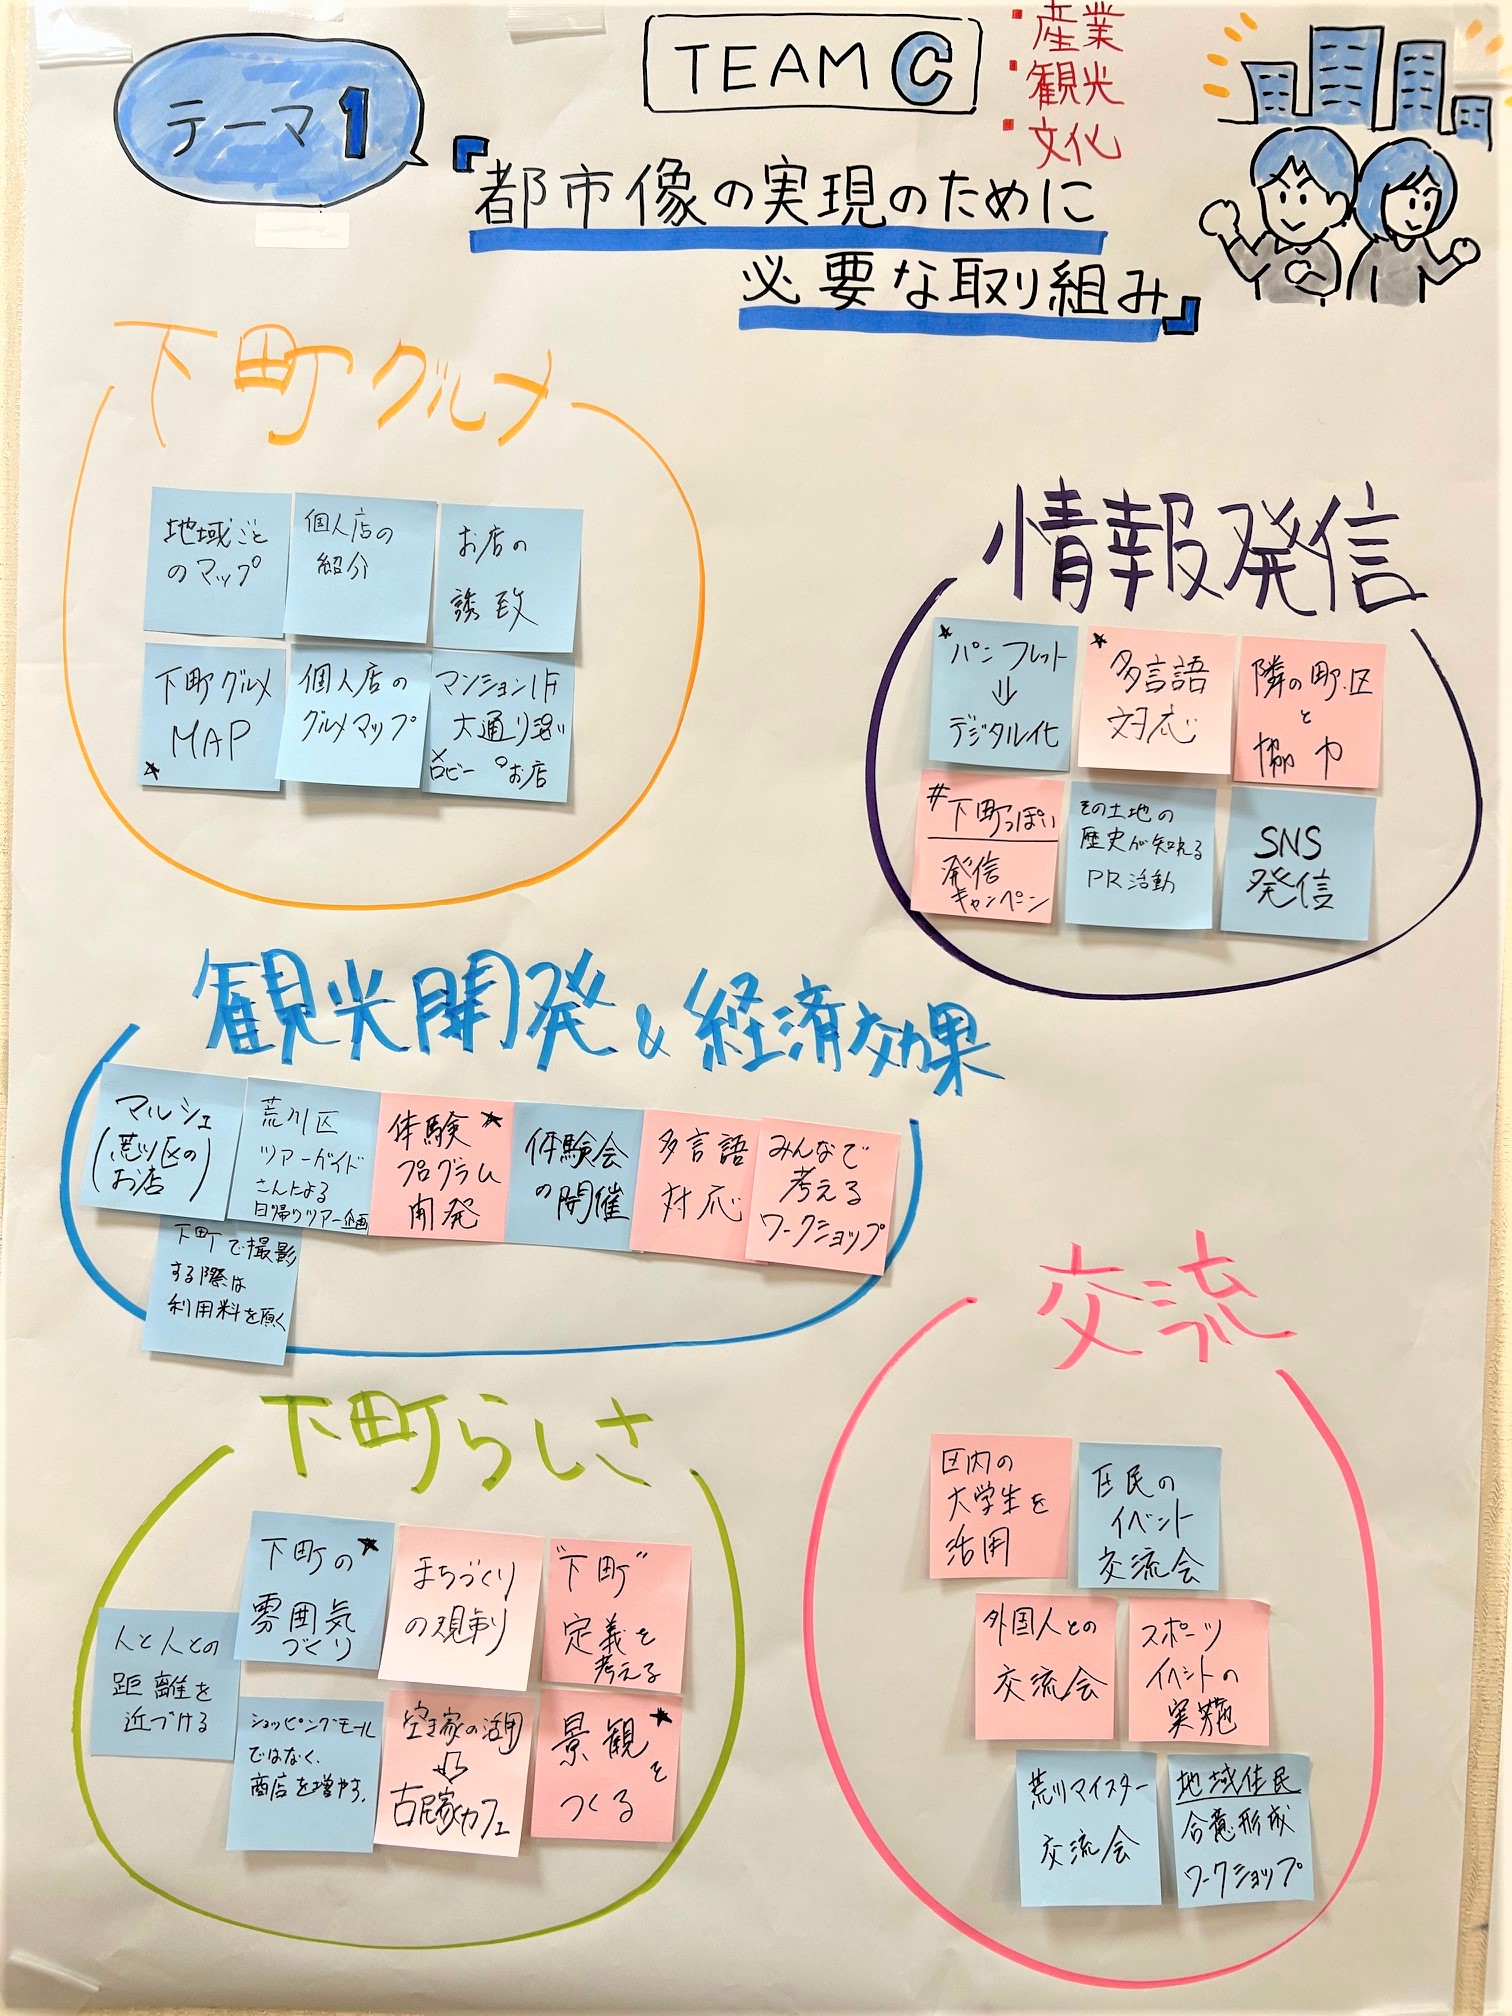 テーマ1
TEAM C
・産業
・観光
・文化
『都市像の実現のために
必要な取り組み』
下町グルメ
地域ごと
のマップ
個人店の
紹介
お店の
誘致
下町グルメ
MAP
★
個人店の
グルメマップ
マンション1F
大通り沿い
×ロビー ○お店
情報発信
★パンフレット
⇓
デジタル化
★多言語
対応
隣の町・区
と
協力
#下町っぽい
発信
キャンペーン
その土地の
歴史が知れる
PR活動
SNS
発信
観光開発&経済効果
マルシェ
(荒川区の
お店)
荒川区
ツアーガイド
さんによる
日帰りツアー企画
体験★
プログラム
開発
体験会
の開催
多言語
対応
みんなで
考える
ワークショップ
下町で撮影
する際は
利用料を頂く
下町らしさ
人と人との
距離を
近づける
下町の★
雰囲気
づくり
まちづくり
の規制
"下町"
定義を
考える
ショッピングモール
ではなく、
商店を増やす。
空き家の活用
⇓
古民家カフェ
景観★
を
つくる
交流
区内の
大学生を
活用
住民の
イベント
交流会
外国人との
交流会
スポーツ
イベントの
実施
荒川マイスター
交流会
地域住民
合意形成
ワークショップ